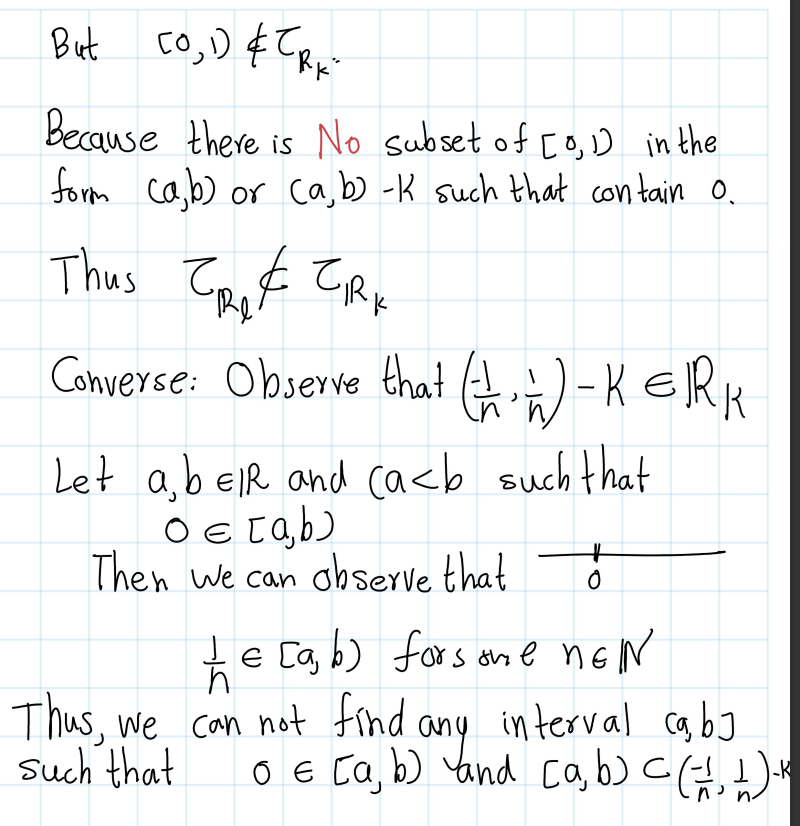 But [0,1) ∉ τ_{R_K}.
Because there is No subset of [0,1) in the
form (a,b) or (a,b) -K such that contain 0.
Thus τ_{ℝ_ℓ} ⊄ τ_{ℝ_K}
Converse: Observe that (-1/n, 1/n) - K ∈ ℝ_K
Let a,b ∈ ℝ and (a<b such that
0 ∈ [a,b)
Then we can observe that
0
1/n ∈ [a,b) for some n ∈ N
Thus, we can not find any interval (a,b]
such that 0 ∈ [a,b) and [a,b) ⊂ (-1/n, 1/n) -K